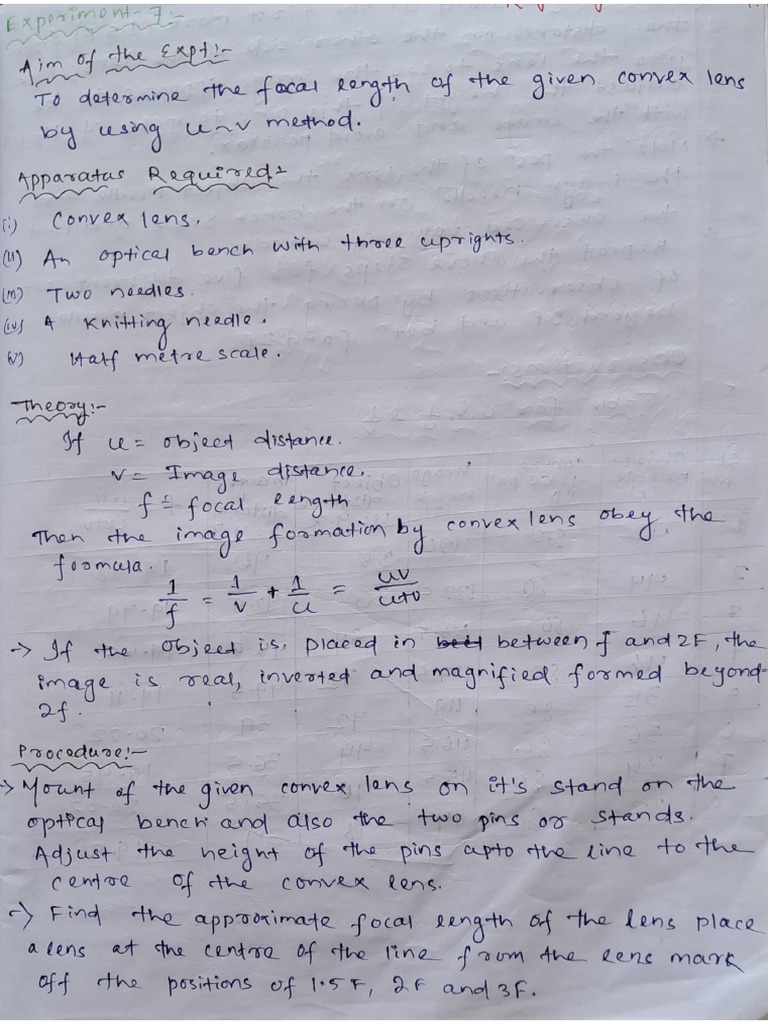 Experiment-7:-
Aim of the Expt:-
To determine the focal length of the given convex lens
by using u-v method.
Apparatus Required:-
(i) Convex lens.
(ii) An optical bench with three uprights.
(iii) Two needles.
(iv) A knitting needle.
(v) Half metre scale.
Theory:-
If u = object distance.
v = Image distance.
f = focal length
Then the image formation by convex lens obey the
formula.
1/f = 1/v + 1/u = uv/u+v
→ If the object is placed in between f and 2F, the
image is real, inverted and magnified formed beyond
2f.
Procedure:-
→ Mount of the given convex lens on it's stand on the
optical bench and also the two pins or stands.
Adjust the height of the pins upto the line to the
centre of the convex lens.
→ Find the approximate focal length of the lens place
a lens at the centre of the line from the lens mark
off the positions of 1.5F, 2F and 3F.